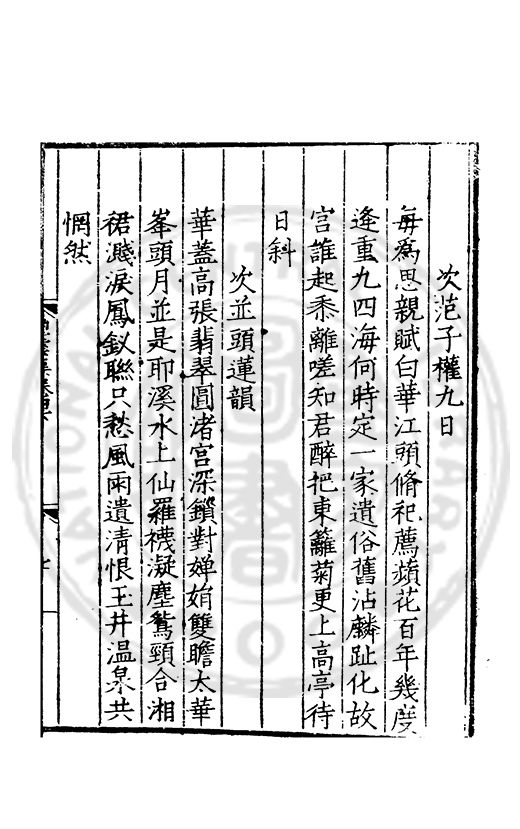 次范子權九日
毎為思親賦白華江頭脩祀薦蘋花百年幾度
逢重九四海何時定一家遺俗舊沾麟趾化故
宮誰起黍離嗟知君醉把東籬菊更上高亭待
日斜
次並頭蓮韻
華蓋高張翡翠圓渚宮深鎖對嬋娟雙瞻太華
峯頭月並是耶溪水上仙羅襪凝塵鴛頸合湘
裙濺淚鳳釵聯只愁風雨遺清恨玉井温泉共
惘然